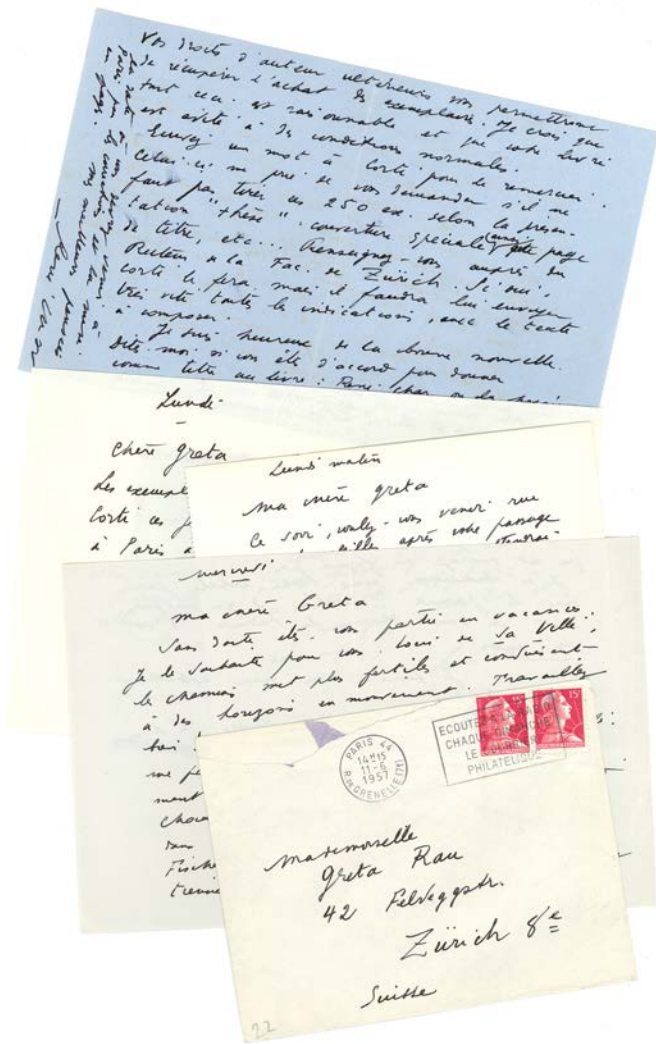 Vos droits d'auteur ultérieurs vous permettront
de récupérer l'achat des exemplaires. Je crois que
tout ceci est raisonnable et que votre livre
est édité à des conditions normales.
Envoyez un mot à Corti pour le remercier.
Celui-ci me prie de vous demander s'il ne
faut pas tirer les 250 ex. selon la présen-
tation "thèse", couverture spéciale, page
de titre, etc... Renseignez-vous auprès du
Recteur de la Fac. de Zürich. Si oui,
Corti le fera, mais il faudra lui envoyer
très vite toutes les indications, avec le texte
à composer.
Je suis heureux de la bonne nouvelle.
Dites-moi si vous êtes d'accord pour donner
comme titre au livre : René Char ou la
Paris par
meilleures pensées
René Char
Lundi
Chère Greta
Les exempl
Corti ces
à Paris
Lundi matin
Ma chère Greta
Ce soir, voulez-vous venir rue
après votre passage
Mercredi
Ma chère Greta
Sans doute êtes-vous partie en vacances.
Je le souhaite pour vous. Loin de la Ville,
les chemins sont plus fertiles et conduisent
à des horizons en mouvement. Travaillez
ment
dans
Fische
PARIS 44
14H15
11-6
1957
R. DE GRENELLE (7E)
ECOUTEZ LA RADIO
CHAQUE DIMANCHE
LE COURRIER
PHILATELIQUE
15F
15F
Mademoiselle
Greta Rau
42 Feldeggstr.
Zürich 8e
Suisse
22